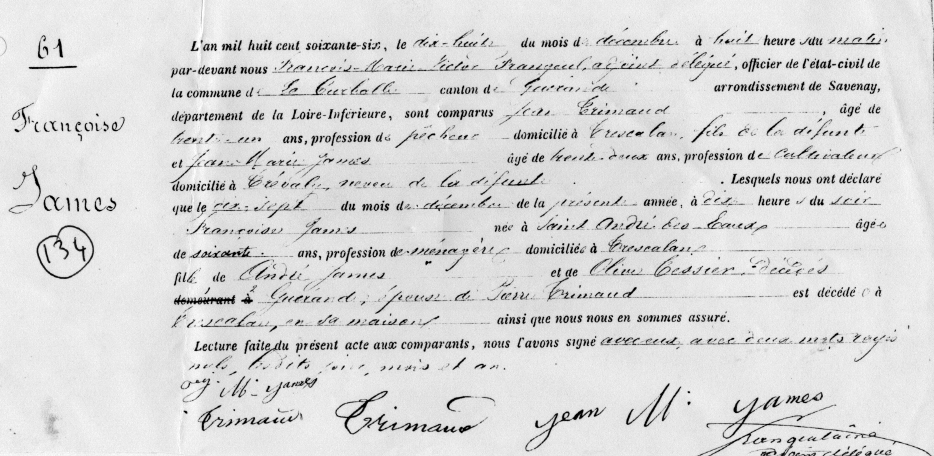 61
Françoise
James
134
L'an mil huit cent soixante-six, le dix-huit du mois de décembre à huit heures du matin
par-devant nous François-Marie Victor adjoint délégué, officier de l'état-civil de
la commune de La Turballe canton de Guérande arrondissement de Savenay,
département de la Loire-Inférieure, sont comparus Jean Trimaud, âgé de
trente-un ans, profession de pêcheur domicilié à Trescalan, fils de la défunte
et Jean Marie James âgé de trente-deux ans, profession de cultivateur
domicilié à Trévaly, neveu de la défunte. Lesquels nous ont déclaré
que le dix-sept du mois de décembre de la présente année, à dix heures du soir
Françoise James née à Saint André des Eaux âgée
de soixante ans, profession de ménagère domiciliée à Trescalan,
fille de André James et de Olive Tessier, décédés
demeurant à Guérande, épouse de Pierre Trimaud est décédée à
Trescalan, en sa maison ainsi que nous nous en sommes assuré.
Lecture faite du présent acte aux comparants, nous l'avons signé avec eux, avec deux mots rayés
nuls, lesdits jour, mois et an.
Mie James
Trimaud Trimaud Jean Mie James